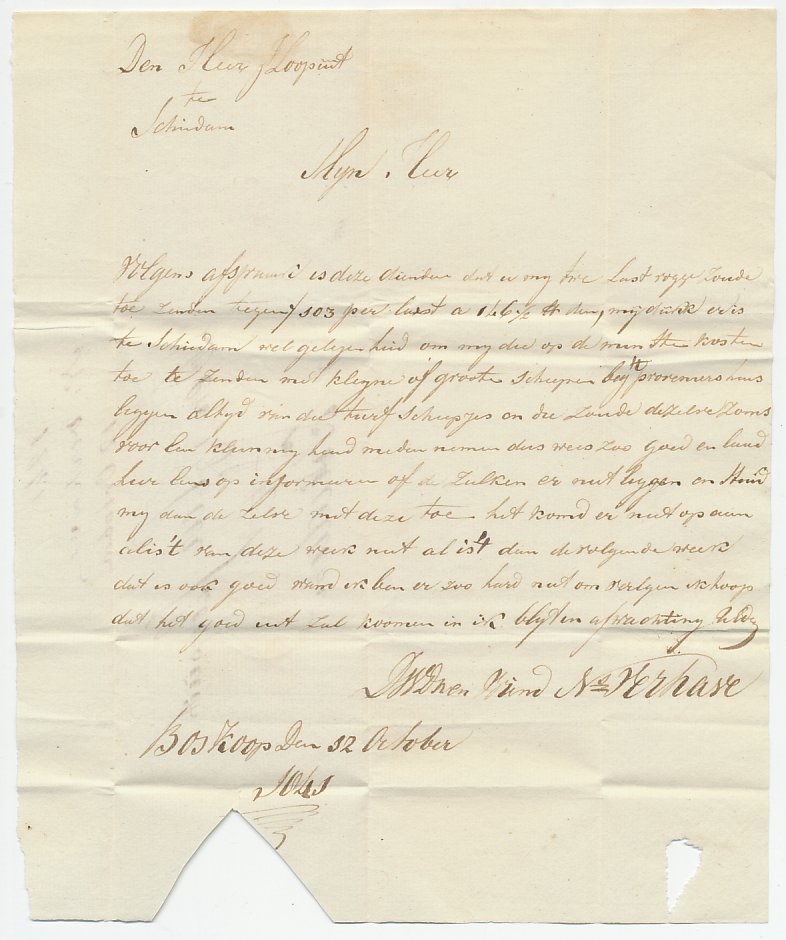 Den Heer J Loopuit
te
Schiedam
Myn Heer
Volgens afspraak is deze diender dat u my twe Last rogge zoude
toe zenden tegen ƒ 103 per last a 146½ ℔ dun, mij dunk er is
te Schiedam wel gelegenhied om my die op de minste kosten
toe te zenden met kleyne of groote scheepen by 't proveniershuis
leggen altyd van die turf scheepjes en die zoude dezelve zoms
voor een kleinnighend meden nemen dus wees zoo goed en laad
hier eens op informeren of de zulken er niet leggen en stuid
my dan de zelve met deze toe het komd er niet op aan
al is't van deze week niet al is't dan de volgende week
dat is ook goed wand ik ben er zoo hard niet om verlgen ik hoop
dat het goed uit zal koomen in ik blyf in afwachting UEd
DWDnen Vriend Ns Verhave
Boskoop Den 12 October